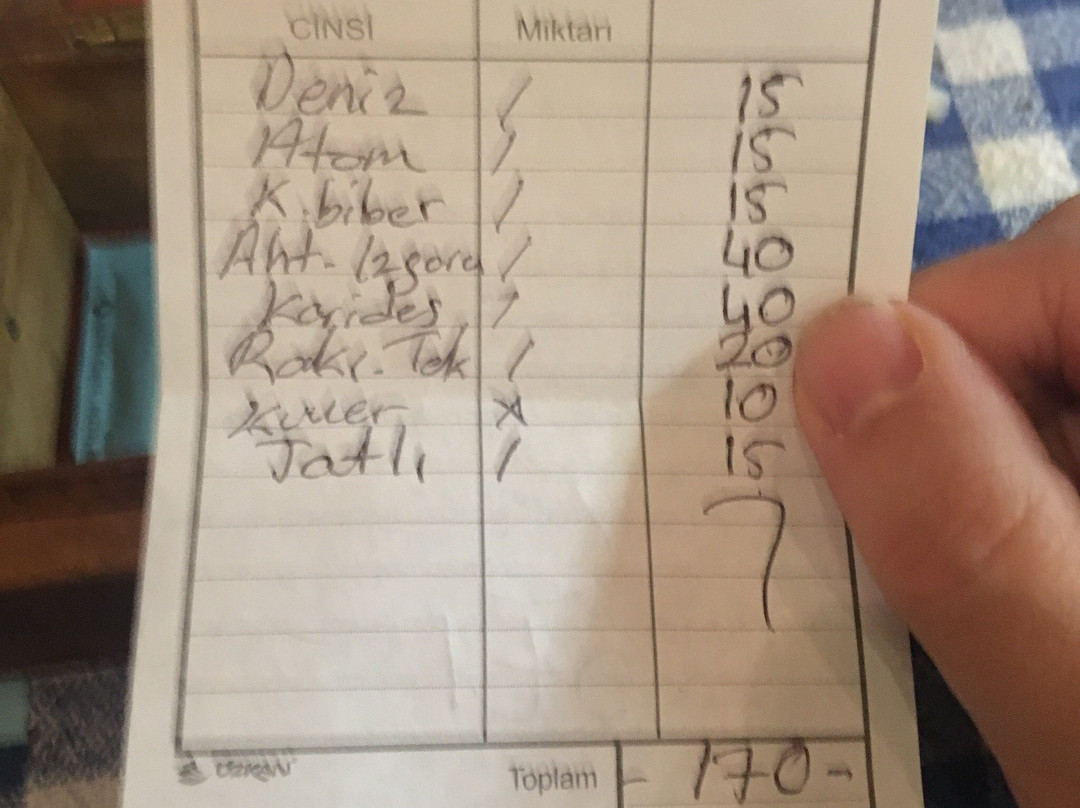 CİNSİ Miktarı
Deniz / 15
Atom / 15
K.biber / 15
Aht. Izgara / 40
Karides / 40
Rakı. Tek / 20
Kuver x 10
Tatlı / 15
Toplam - 170 -